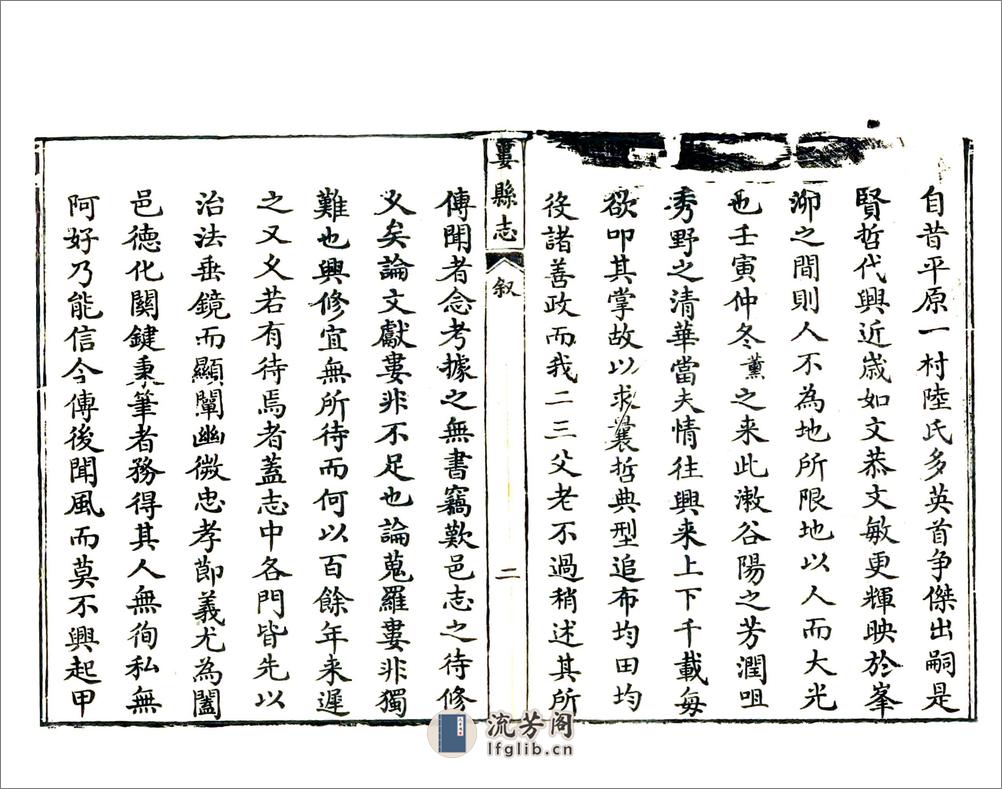 自昔平原一村陸氏多英首争傑出嗣是
賢哲代興近歲如文恭文敏更輝映於峯
泖之間則人不為地所限地以人而大光
也壬寅仲冬薰之来此潄谷陽之芳潤咀
秀野之清華當夫情往興来上下千載每
欲叩其掌故以求曩哲典型追布均田均
役諸善政而我二三父老不過稍述其所
婁縣志
叙
二
傳聞者念考據之無書竊歎邑志之待修
乂矣論文獻婁非不足也論蒐羅婁非獨
難也興修宜無所待而何以百餘年来遲
之又乂若有待焉者蓋志中各門皆先以
治法垂鏡而顯闡幽微忠孝節義尤為闔
邑德化關鍵秉筆者務得其人無徇私無
阿好乃能信今傳後聞風而莫不興起甲
流芳阁
lfglib.cn